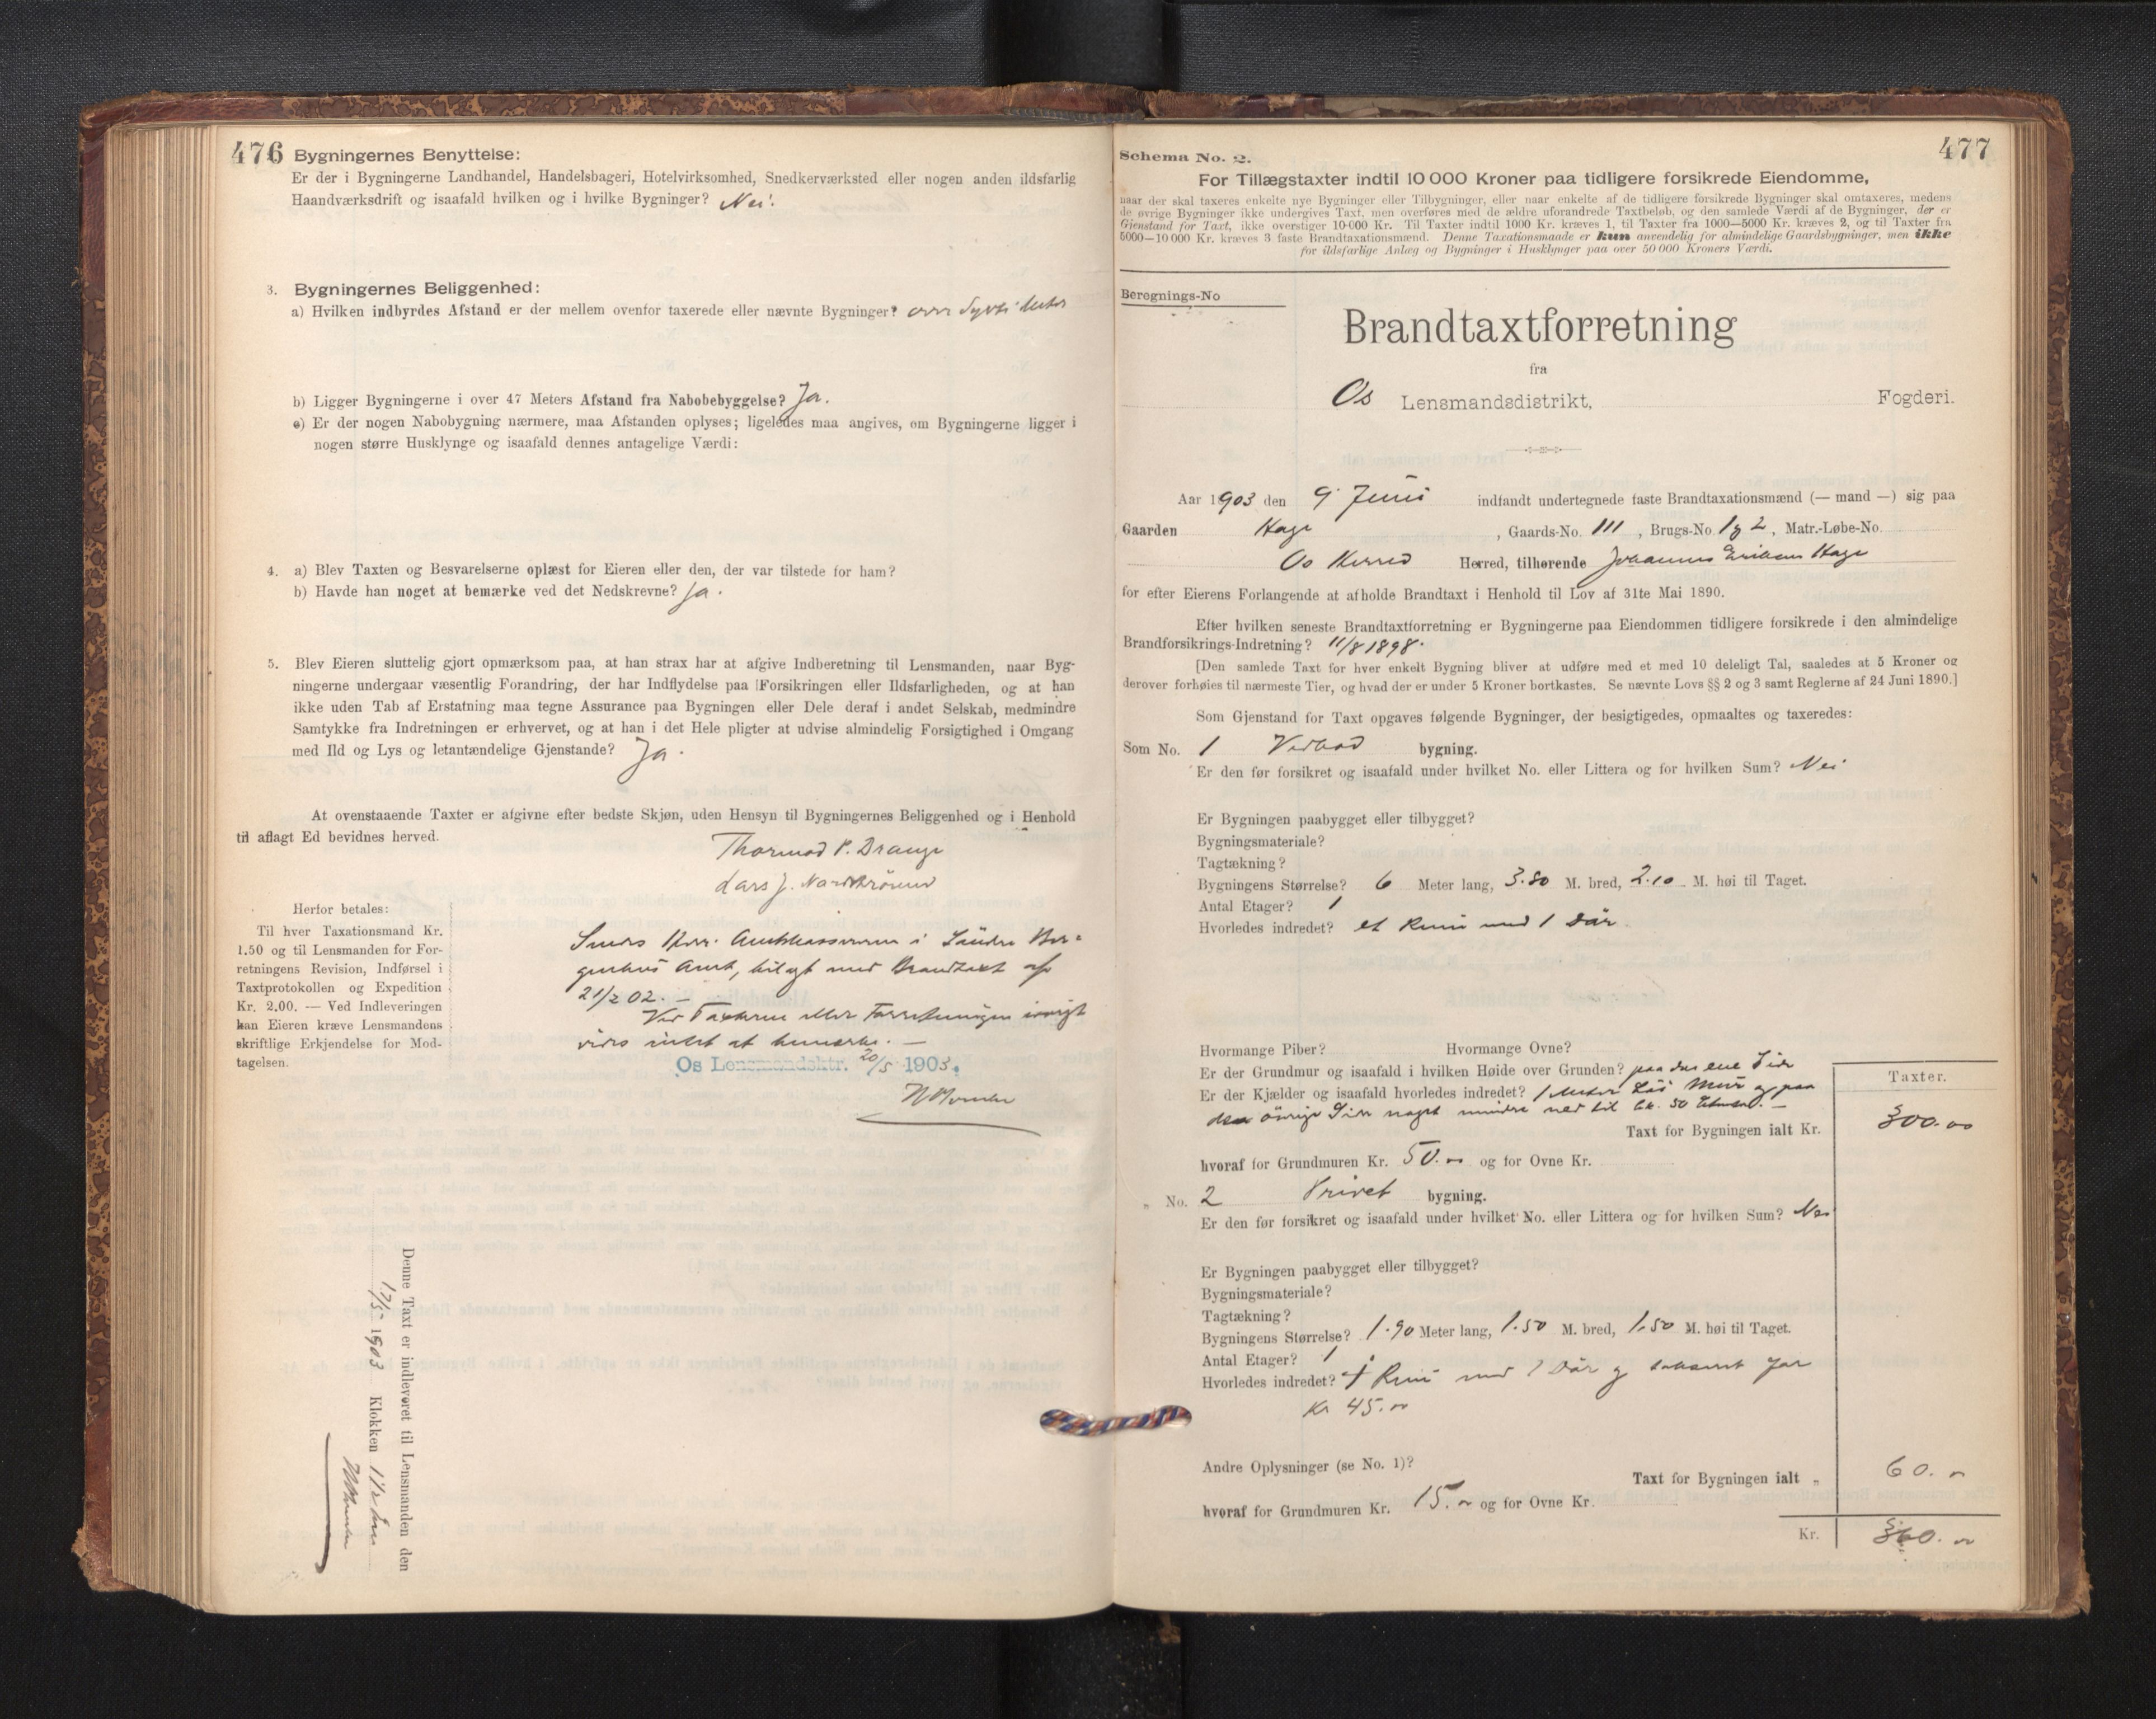 476
Bygningernes Benyttelse:
Er der i Bygningerne Landhandel, Handelsbageri, Hotelvirksomhed, Snedkerværksted eller nogen anden ildsfarlig
Haandværksdrift og isaafald hvilken og i hvilke Bygninger? Nei.
3. Bygningernes Beliggenhed:
a) Hvilken indbyrdes Afstand er der mellem ovenfor taxerede eller nævnte Bygninger? over Meter
b) Ligger Bygningerne i over 47 Meters Afstand fra Nabobebyggelse? Ja.
c) Er der nogen Nabobygning nærmere, maa Afstanden oplyses; ligeledes maa angives, om Bygningerne ligger i
nogen større Husklynge og isaafald dennes antagelige Værdi:
4. a) Blev Taxten og Besvarelserne oplæst for Eieren eller den, der var tilstede for ham?
b) Havde han noget at bemærke ved det Nedskrevne? Ja.
5. Blev Eieren sluttelig gjort opmærksom paa, at han strax har at afgive Indberetning til Lensmanden, naar Byg-
ningerne undergaar væsentlig Forandring, der har Indflydelse paa Forsikringen eller Ildsfarligheden, og at han
ikke uden Tab af Erstatning maa tegne Assurance paa Bygningen eller Dele deraf i andet Selskab, medmindre
Samtykke fra Indretningen er erhvervet, og at han i det Hele pligter at udvise almindelig Forsigtighed i Omgang
med Ild og Lys og letantændelige Gjenstande? Ja.
At ovenstaaende Taxter er afgivne efter bedste Skjøn, uden Hensyn til Bygningernes Beliggenhed og i Henhold
til aflagt Ed bevidnes herved.
Thormod P. Drange
Lars J.
Herfor betales:
Til hver Taxationsmand Kr.
1.50 og til Lensmanden for For-
retningens Revision, Indførsel i
Taxtprotokollen og Expedition
Kr. 2.00. — Ved Indleveringen
kan Eieren kræve Lensmandens
skriftlige Erkjendelse for Mod-
tagelsen.
Sendes Herr Amtskassereren i Søndre Ber-
genhus Amt, bilagt med Brandtaxt af
21/2 02. —
Ved Taxterne eller Forretningen iøvrigt
vides intet at bemærke. —
Os Lensmandsktr. 20/5 1903.
Denne Taxt er indleveret til Lensmanden den
12/5 1903 Klokken 11 1/2
477
Schema No. 2.
For Tillægstaxter indtil 10 000 Kroner paa tidligere forsikrede Eiendomme,
naar der skal taxeres enkelte nye Bygninger eller Tilbygninger, eller naar enkelte af de tidligere forsikrede Bygninger skal omtaxeres, medens
de øvrige Bygninger ikke undergives Taxt, men overføres med de ældre uforandrede Taxtbeløb, og den samlede Værdi af de Bygninger, der er
Gjenstand for Taxt, ikke overstiger 10 000 Kr. Til Taxter indtil 1000 Kr. kræves 1, til Taxter fra 1000—5000 Kr. kræves 2, og til Taxter fra
5000—10 000 Kr. kræves 3 faste Brandtaxationsmænd. Denne Taxationsmaade er kun anvendelig for almindelige Gaardsbygninger, men ikke
for ildsfarlige Anlæg og Bygninger i Husklynger paa over 50 000 Kroners Værdi.
Beregnings-No
Brandtaxtforretning
fra
Os Lensmandsdistrikt, Fogderi.
Aar 1903 den 9 Juni indfandt undertegnede faste Brandtaxationsmænd (— mand —) sig paa
Gaarden Hage , Gaards-No. 111 , Brugs-No 1 og 2 , Matr.-Løbe-No.
Os Herred Herred, tilhørende Johannes Eriksen Hage
for efter Eierens Forlangende at afholde Brandtaxt i Henhold til Lov af 31te Mai 1890.
Efter hvilken seneste Brandtaxtforretning er Bygningerne paa Eiendommen tidligere forsikrede i den almindelige
Brandforsikrings-Indretning? 11/8 1898.
[Den samlede Taxt for hver enkelt Bygning bliver at udføre med et med 10 deleligt Tal, saaledes at 5 Kroner og
derover forhøies til nærmeste Tier, og hvad der er under 5 Kroner bortkastes. Se nævnte Lovs §§ 2 og 3 samt Reglerne af 24 Juni 1890.]
Som Gjenstand for Taxt opgaves følgende Bygninger, der besigtigedes, opmaaltes og taxeredes:
Som No. 1 Vedbod bygning.
Er den før forsikret og isaafald under hvilket No. eller Littera og for hvilken Sum? Nei
Er Bygningen paabygget eller tilbygget?
Bygningsmateriale?
Tagtækning?
Bygningens Størrelse? 6 Meter lang, 3.80 M. bred, 2.10 M. høi til Taget.
Antal Etager? 1
Hvorledes indredet? et Rum med 1 Dør
Hvormange Piber? Hvormange Ovne?
Er der Grundmur og isaafald i hvilken Høide over Grunden? paa den ene Side
Er der Kjælder og isaafald hvorledes indredet? 1 Meter Mur og paa
den øvrige Side noget mindre ned til 50
Taxter.
Taxt for Bygningen ialt Kr. 300.00
hvoraf for Grundmuren Kr. 50.00 og for Ovne Kr.
„ No. 2 Privet bygning.
Er den før forsikret og isaafald under hvilket No. eller Littera og for hvilken Sum? Nei
Er Bygningen paabygget eller tilbygget?
Bygningsmateriale?
Tagtækning?
Bygningens Størrelse? 1.90 Meter lang, 1.50 M. bred, 1.50 M. høi til Taget.
Antal Etager? 1
Hvorledes indredet? 1 Rum med 1 Dør og taxeret for
Kr 45.00
Andre Oplysninger (se No. 1)?
Taxt for Bygningen ialt „ 60.00
hvoraf for Grundmuren Kr. 15.00 og for Ovne Kr.
Kr. 360.00